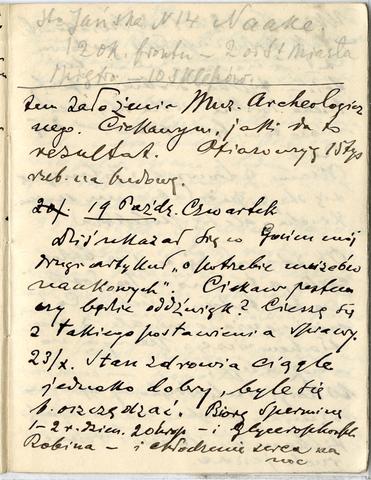 Sto Jańska N 14 Naake.
2 ok. frontu – 2 od St. Miasta
– 10 sklepów.
tem założenia Muz. Archeologicz
nego. Ciekawym, jaki da to
rezultat. Ofiarowują 15 tys
rub. na budowę.
20/. 19 Paźdz. Czwartek
Dziś ukazał się w Gońcu mój
drugi artykuł „o potrzebie muzeów
naukowych”. Ciekaw jestem
czy będzie oddźwięk? Cieszę się
z takiego postawienia sprawy.
23/X. Stan zdrowia ciągle
jednako dobry, byle się
oszczędzać. Biorę Sperminę
1–2 r. dzien. 20 krop – i Glycerophosph.
Robina – i chłodzenie serca na
noc